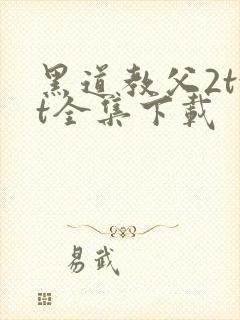 黑道教父2t
t全集下载
易武